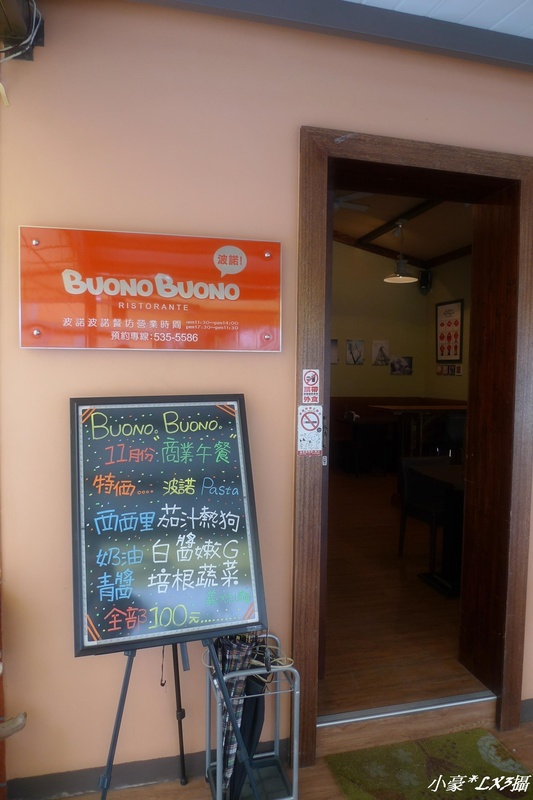 波諾!
BUONO BUONO
RISTORANTE
波諾波諾餐坊營業時間 am11:30~pm14:00
pm17:30~pm11:30
預約專線:535-5586
禁帶
外食
BUONO BUONO
11月份 商業午餐
特価.... 波諾 Pasta
西西里 茄汁熱狗
奶油 白醬嫩G
青醬 培根蔬菜
全部 100元........
小豪*LX3攝